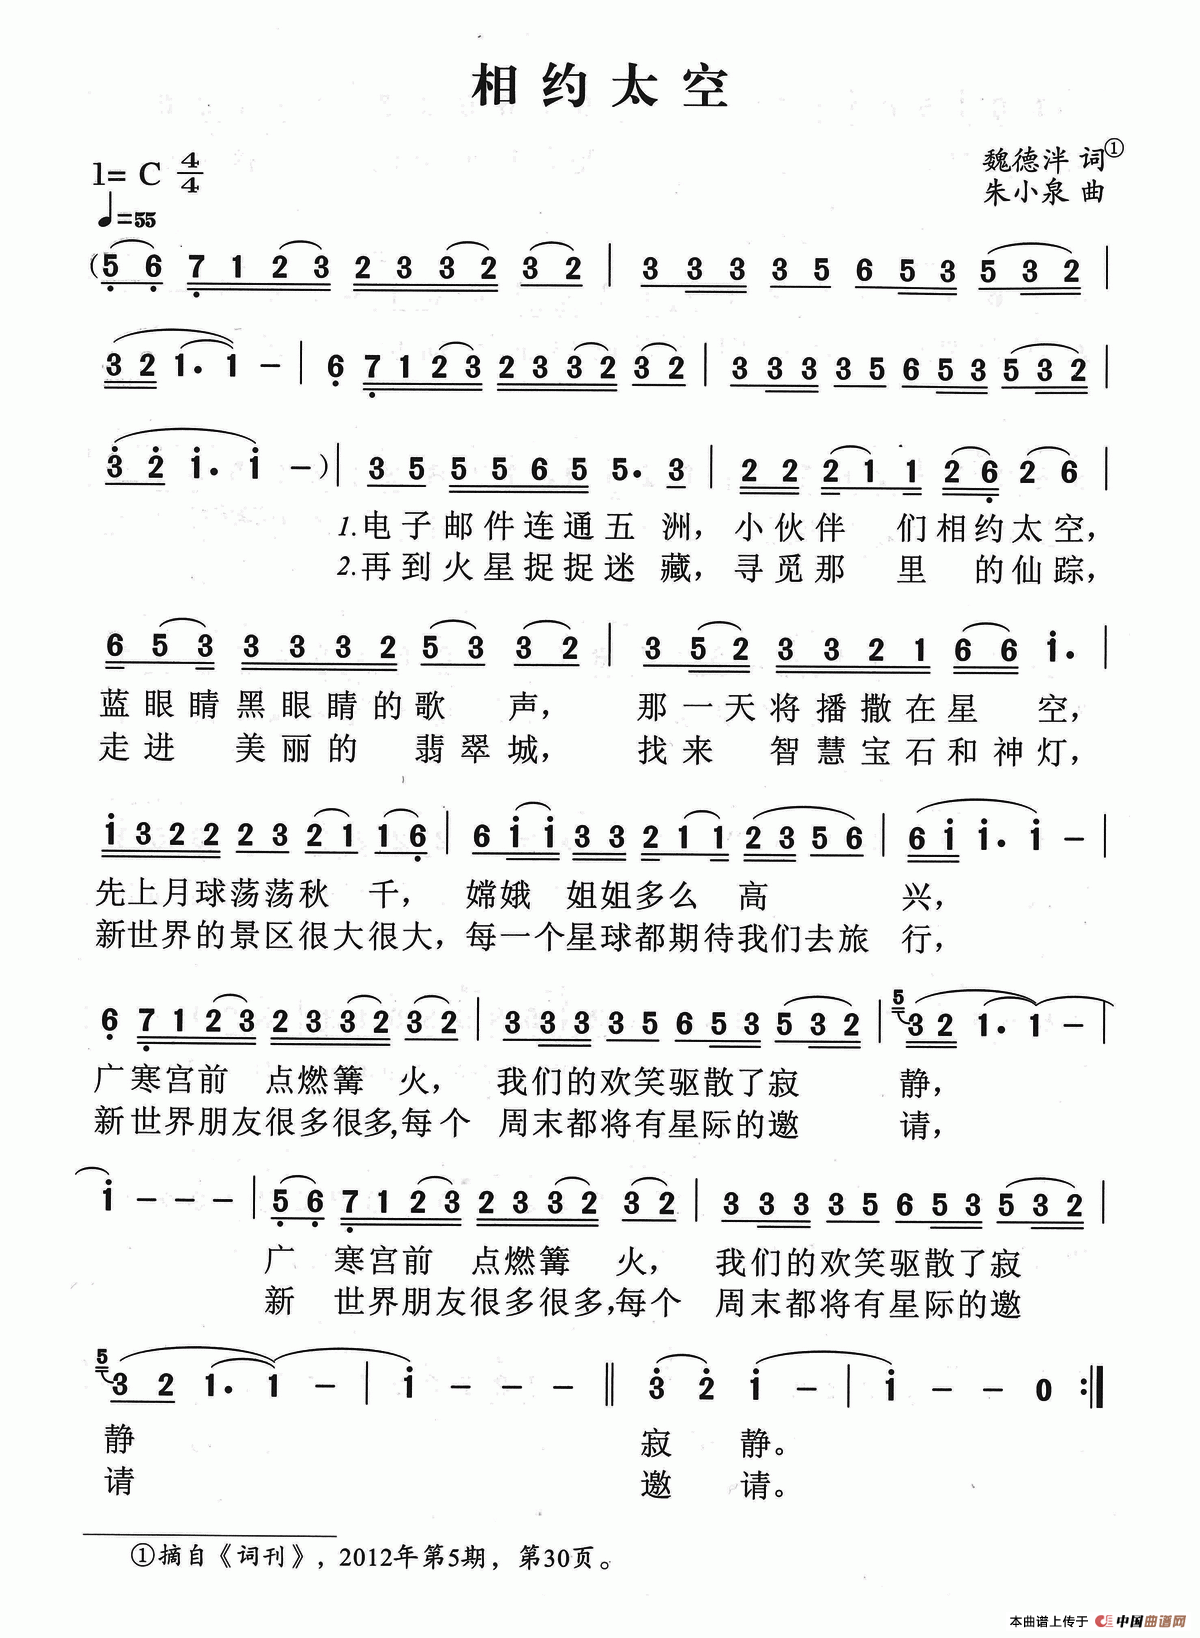 相约太空
1= C 4/4
魏德泮 词①
朱小泉 曲
♩=55
(5 6 7 1 2 3 2 3 3 2 3 2 | 3 3 3 3 5 6 5 3 5 3 2 |
3 2 1. 1 – | 6 7 1 2 3 2 3 3 2 3 2 | 3 3 3 3 5 6 5 3 5 3 2 |
3 2 1. 1 –) | 3 5 5 5 6 5 5. 3 | 2 2 2 1 1 2 6 2 6 |
1.电子邮件连通五 洲，小伙伴 们相约太空，
2.再到火星捉捉迷 藏，寻觅那 里 的仙踪，
6 5 3 3 3 3 2 5 3 3 2 | 3 5 2 3 3 2 1 6 6 1. |
蓝眼睛黑眼睛的歌 声， 那一天将播撒在星 空，
走进 美丽的 翡翠城， 找来 智慧宝石和神灯，
1 3 2 2 2 3 2 1 1 6 | 6 1 1 3 3 2 1 1 2 3 5 6 | 6 1 1. 1 – |
先上月球荡荡秋 千， 嫦娥 姐姐多么 高 兴，
新世界的景区很大很大，每一个星球都期待我们去旅 行，
6 7 1 2 3 2 3 3 2 3 2 | 3 3 3 3 5 6 5 3 5 3 2 | 5 3 2 1. 1 – |
广寒宫前 点燃篝 火， 我们的欢笑驱散了寂 静，
新世界朋友很多很多，每个 周末都将有星际的邀 请，
1 – – – | 5 6 7 1 2 3 2 3 3 2 3 2 | 3 3 3 3 5 6 5 3 5 3 2 |
广 寒宫前 点燃篝 火， 我们的欢笑驱散了寂
新 世界朋友很多很多，每个 周末都将有星际的邀
5 3 2 1. 1 – | 1 – – – ‖ 3 2 1 – | 1 – – 0 :‖
静 寂 静。
请 邀 请。
①摘自《词刊》，2012年第5期，第30页。
本曲谱上传于 中国曲谱网